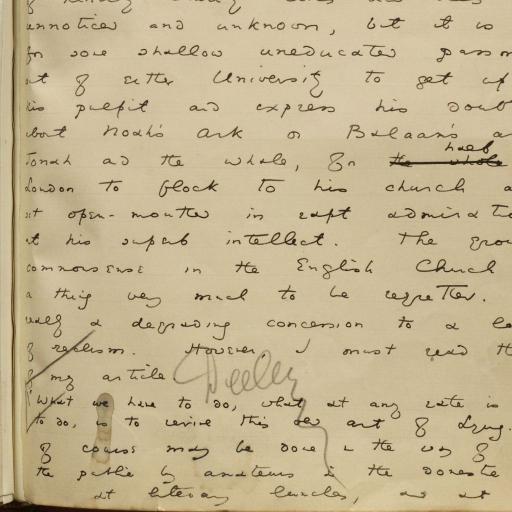 unnoticed and unknown, but it is
for some shallow uneducated passm
out of either University to get up
his pulpit and express his doub
about Noah's Ark or Balaam's a
Jonah and the whale, for the whole half
London to flock to his church a
sit open-mouthed in rapt admiratio
at his superb intellect. The grow
commonsense in the English Church
a thing very much to be regretted.
really a degrading concession to a lo
of realism. However, I must read th
of my article
Deeley
"What we have to do, what at any rate is
to do, is to revive this old art of Lying.
of course may be done in the way of
the public by amateurs in the domestic
at literary lunches, and at